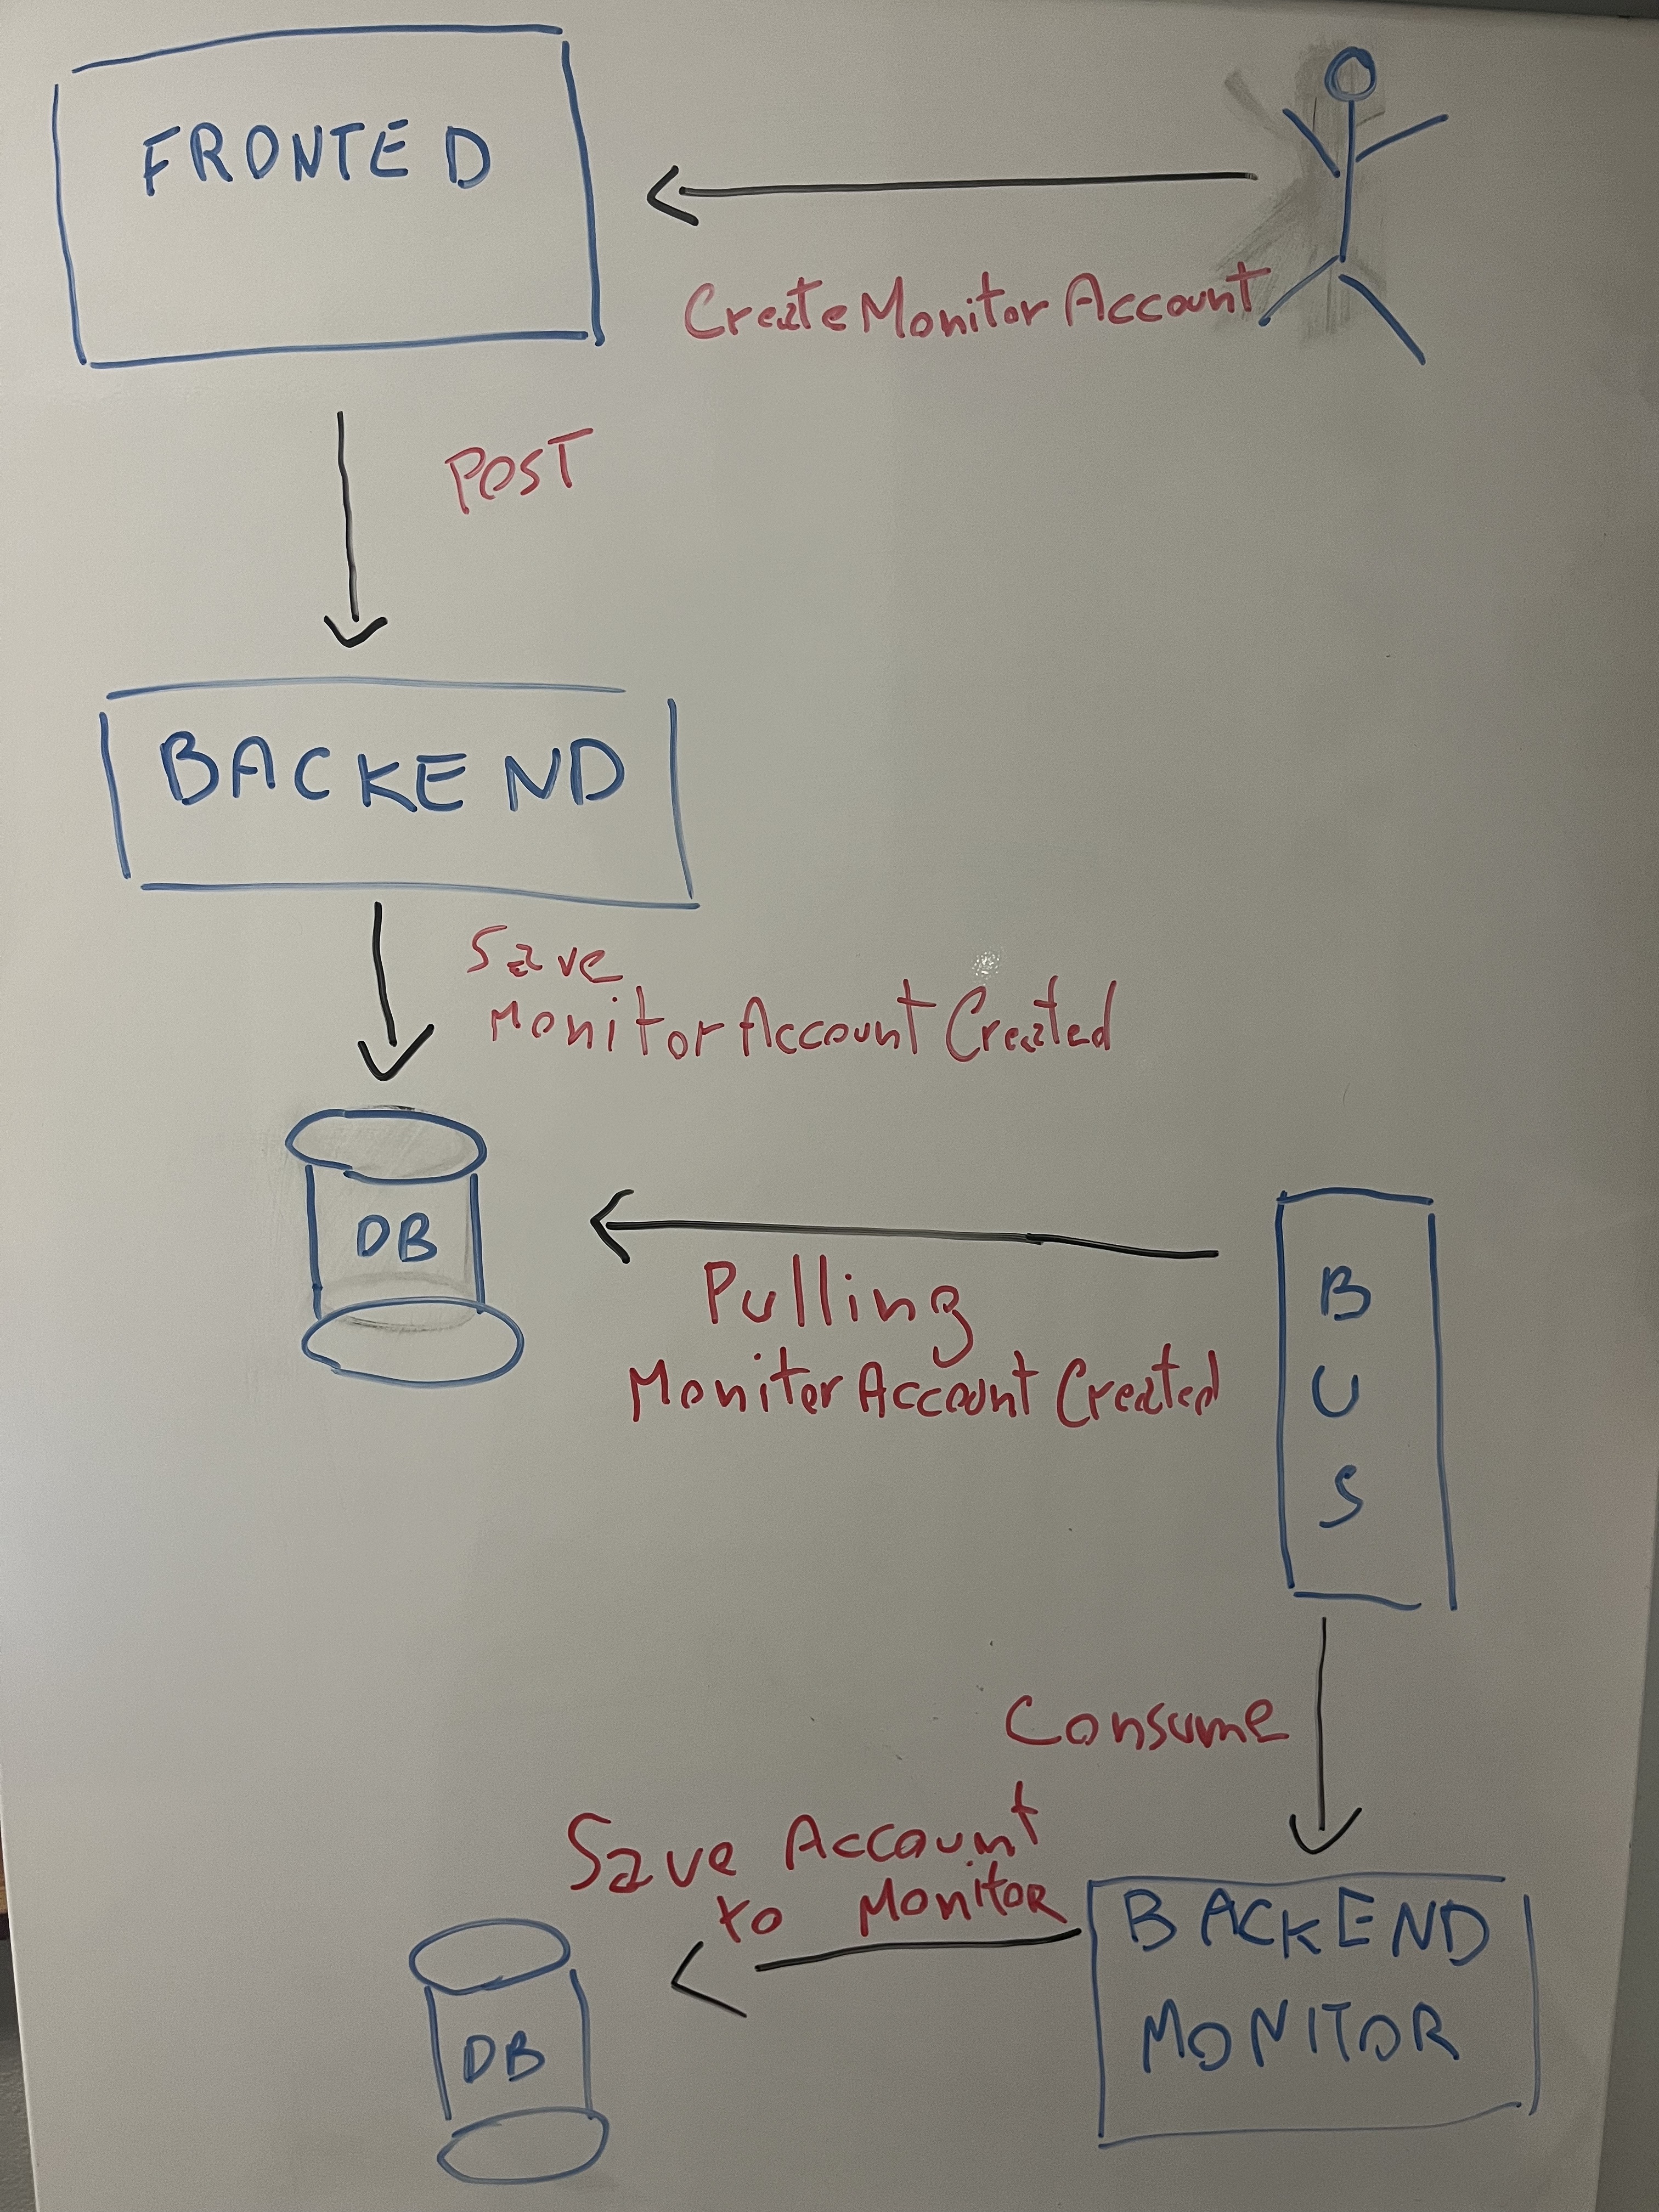 FRONTED
CreateMonitorAccount
POST
BACKEND
Save
MonitorAccountCreated
DB
Pulling
MonitorAccountCreated
B
U
S
Consume
Save Account
to Monitor
BACKEND
MONITOR
DB